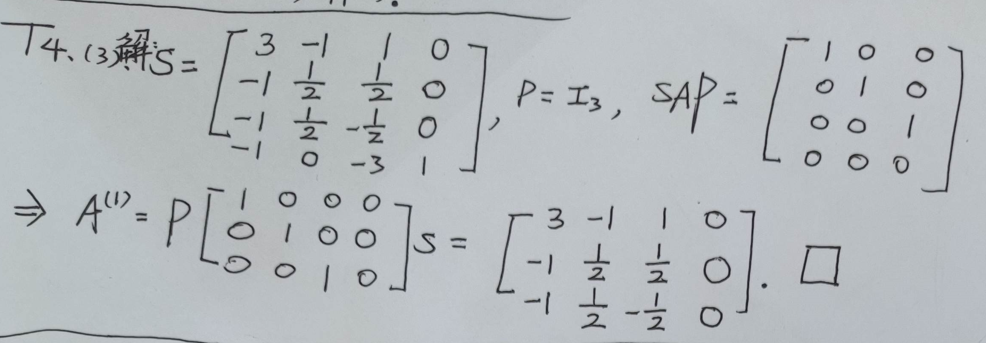 T4、(3)解:S = [3 -1 1 0; -1 1/2 1/2 0; -1 1/2 -1/2 0; -1 0 -3 1], P = I₃, SAP = [1 0 0; 0 1 0; 0 0 1; 0 0 0]
⇒ A⁽¹⁾ = P[1 0 0 0; 0 1 0 0; 0 0 1 0]S = [3 -1 1 0; -1 1/2 1/2 0; -1 1/2 -1/2 0]. □